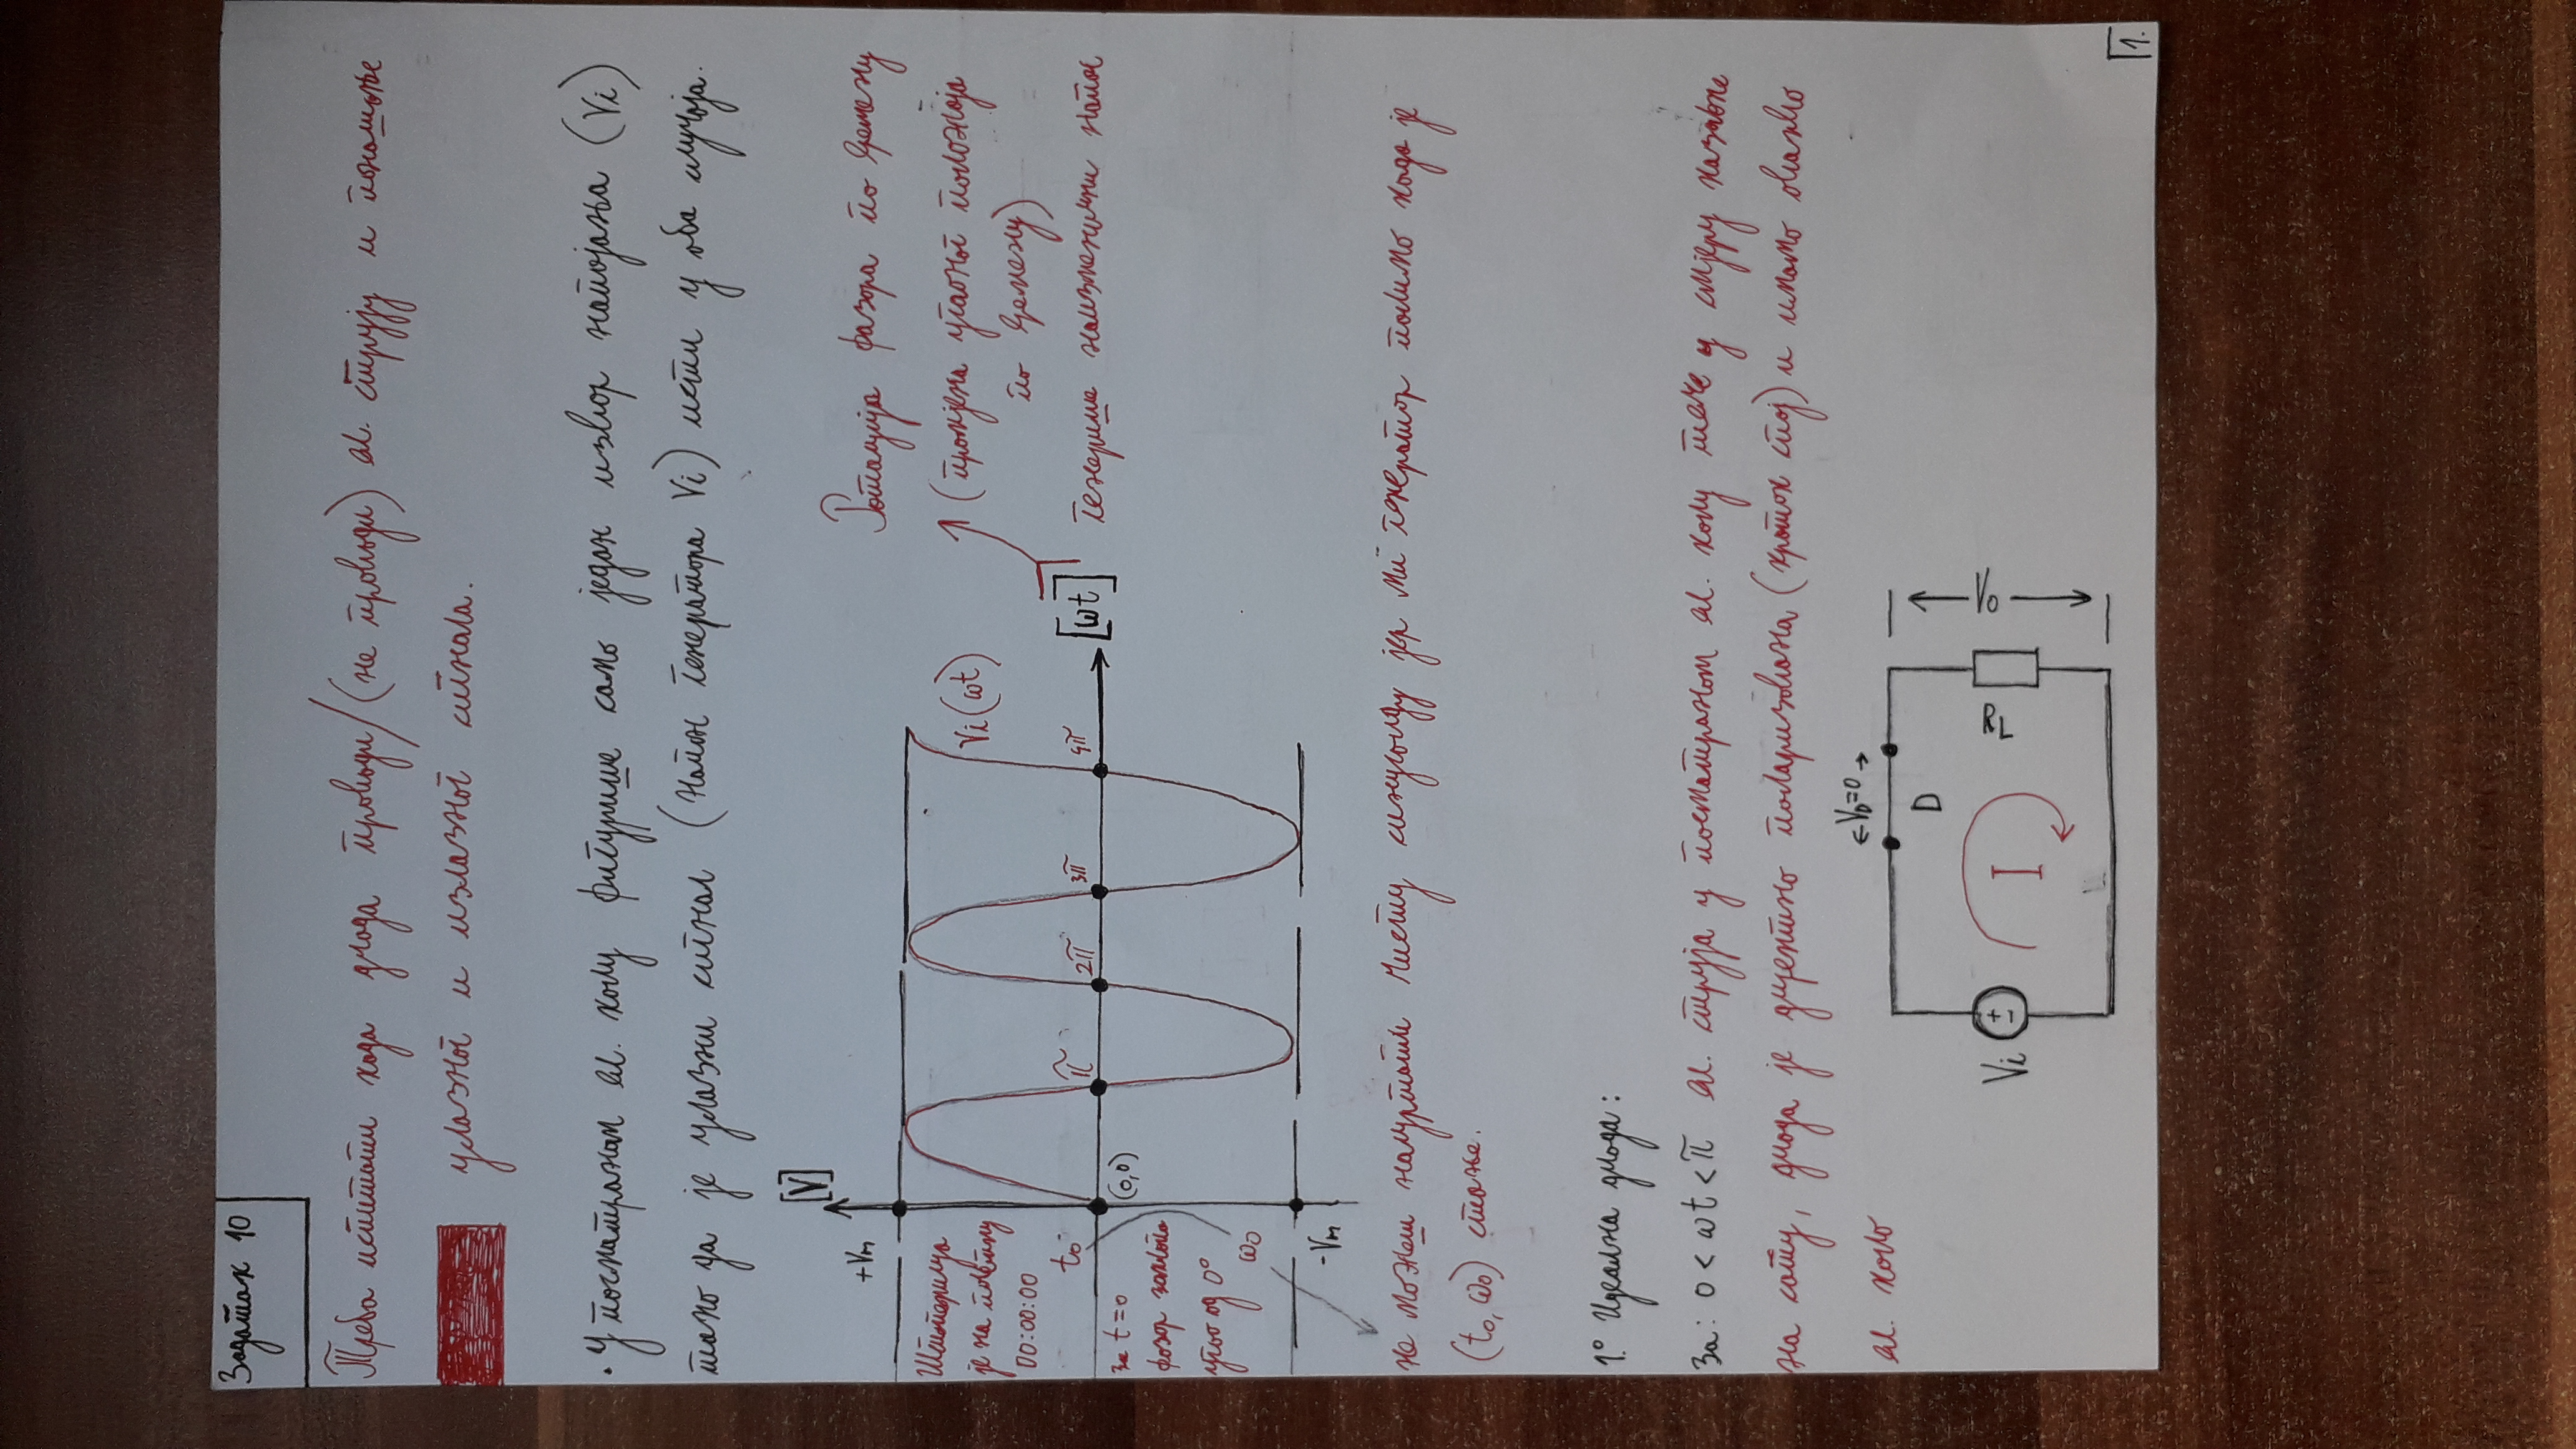 Задатак 10
Треба испитати када диода проводи/(не проводи) ел. струју и понашање
улазног и излазног сигнала.
• У посматраном ел. колу фигурише само један извор напајања (Vi)
тако да је улазни сигнал (напон генератора Vi) исти у оба случаја.
[V]
+Vm
Штоперица
је на почетку
00:00:00
t0
за t=0
фазор заклапа
угао од 0°
ω0
-Vm
(0,0)
π
2π
3π
4π
Vi(ωt)
[ωt]
Ротација фазора по времену
(промјена угаоног положаја
по времену)
генерише наизменични напон
не можеш нацртати чисту синусоиду јер ми генератор палимо када је
(t0, ω0) стање.
1.° Идеална диода:
За: 0 < ωt < π ел. струја у посматраном ел. колу тече у смјеру казаљке
на сату, диода је директно поларизована (кратак спој) и имамо овакво
ел. коло
VD=0
D
Vi
+
-
I
RL
Vo
1.